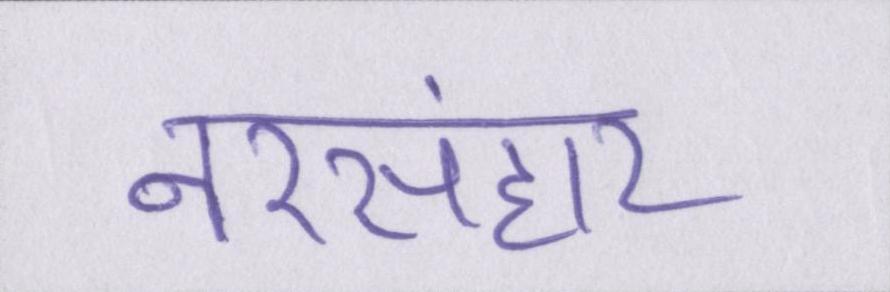 नरसंहार